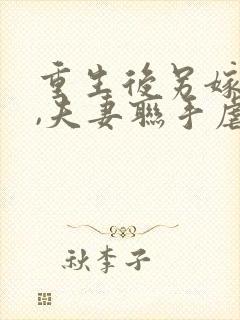 重生後另嫁
,夫妻聯手虐
秋李子